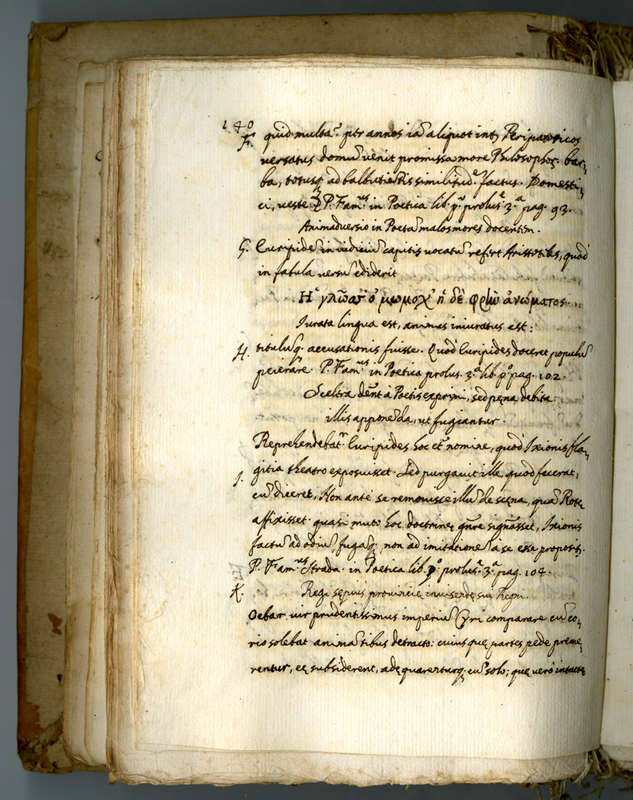 140
F. quid multa? pꝰ annos iã aliquot intꝫ Peripateticos
versatus domũ venit promissa more Philosophoꝝ bar,
ba, totusq; ad balbutiẽtis similitudẽ factus. Domesti,
ci, veste P. Famus in Poetica lib. pº prolusẽ 3.ª pag. 93.
Animadversio in Poetas malos mores docentes.
G. Euripidẽ in iudiciũ capitis vocatũ refert Aristoteles, quod
in fabula versũ ediderit
Η γλῶσσ' ὀμώμοχ' ἡ δὲ φρὴν ἀνώμοτος.
Iurata lingua est, animus iniuratus est:
H. titulũq. accusationis fuisse. Quod Euripides doceret populũ
peierare. P. Famus in Poetica prolus. 3.ª lib. pº pag. 102.
Scelera debent à Poetis exprimi, sed pęna debita
illis apponẽda, ut fugiantur.
Reprehendebatr Euripides hoc et nomine, quod Ixionis fla,
I. gitia theatro exposuisset. Sed purgavit ille quod fecerat,
cũ diceret, Non ante se removisse illũ de scęna, quã Rotę
affixisset. quasi muto hoc doctrinę gñre signasset, Ixionis
factũ ad odiũ, fugãq;, non ad imitationẽ à se esse propositũ.
P. Famus Strada in Poetica lib. pº prolusẽ 3.ª pag. 104.
K. Regi sępius provincię invisendę sui Regni.
Oebar vir prudentissimus imperiũ Cyri comparare cũ co,
rio solebat animantibus detracto: cuius quę partes pede preme,
rentur, eę subsiderent, adęquarenturq; cũ solo; quę verò intactę